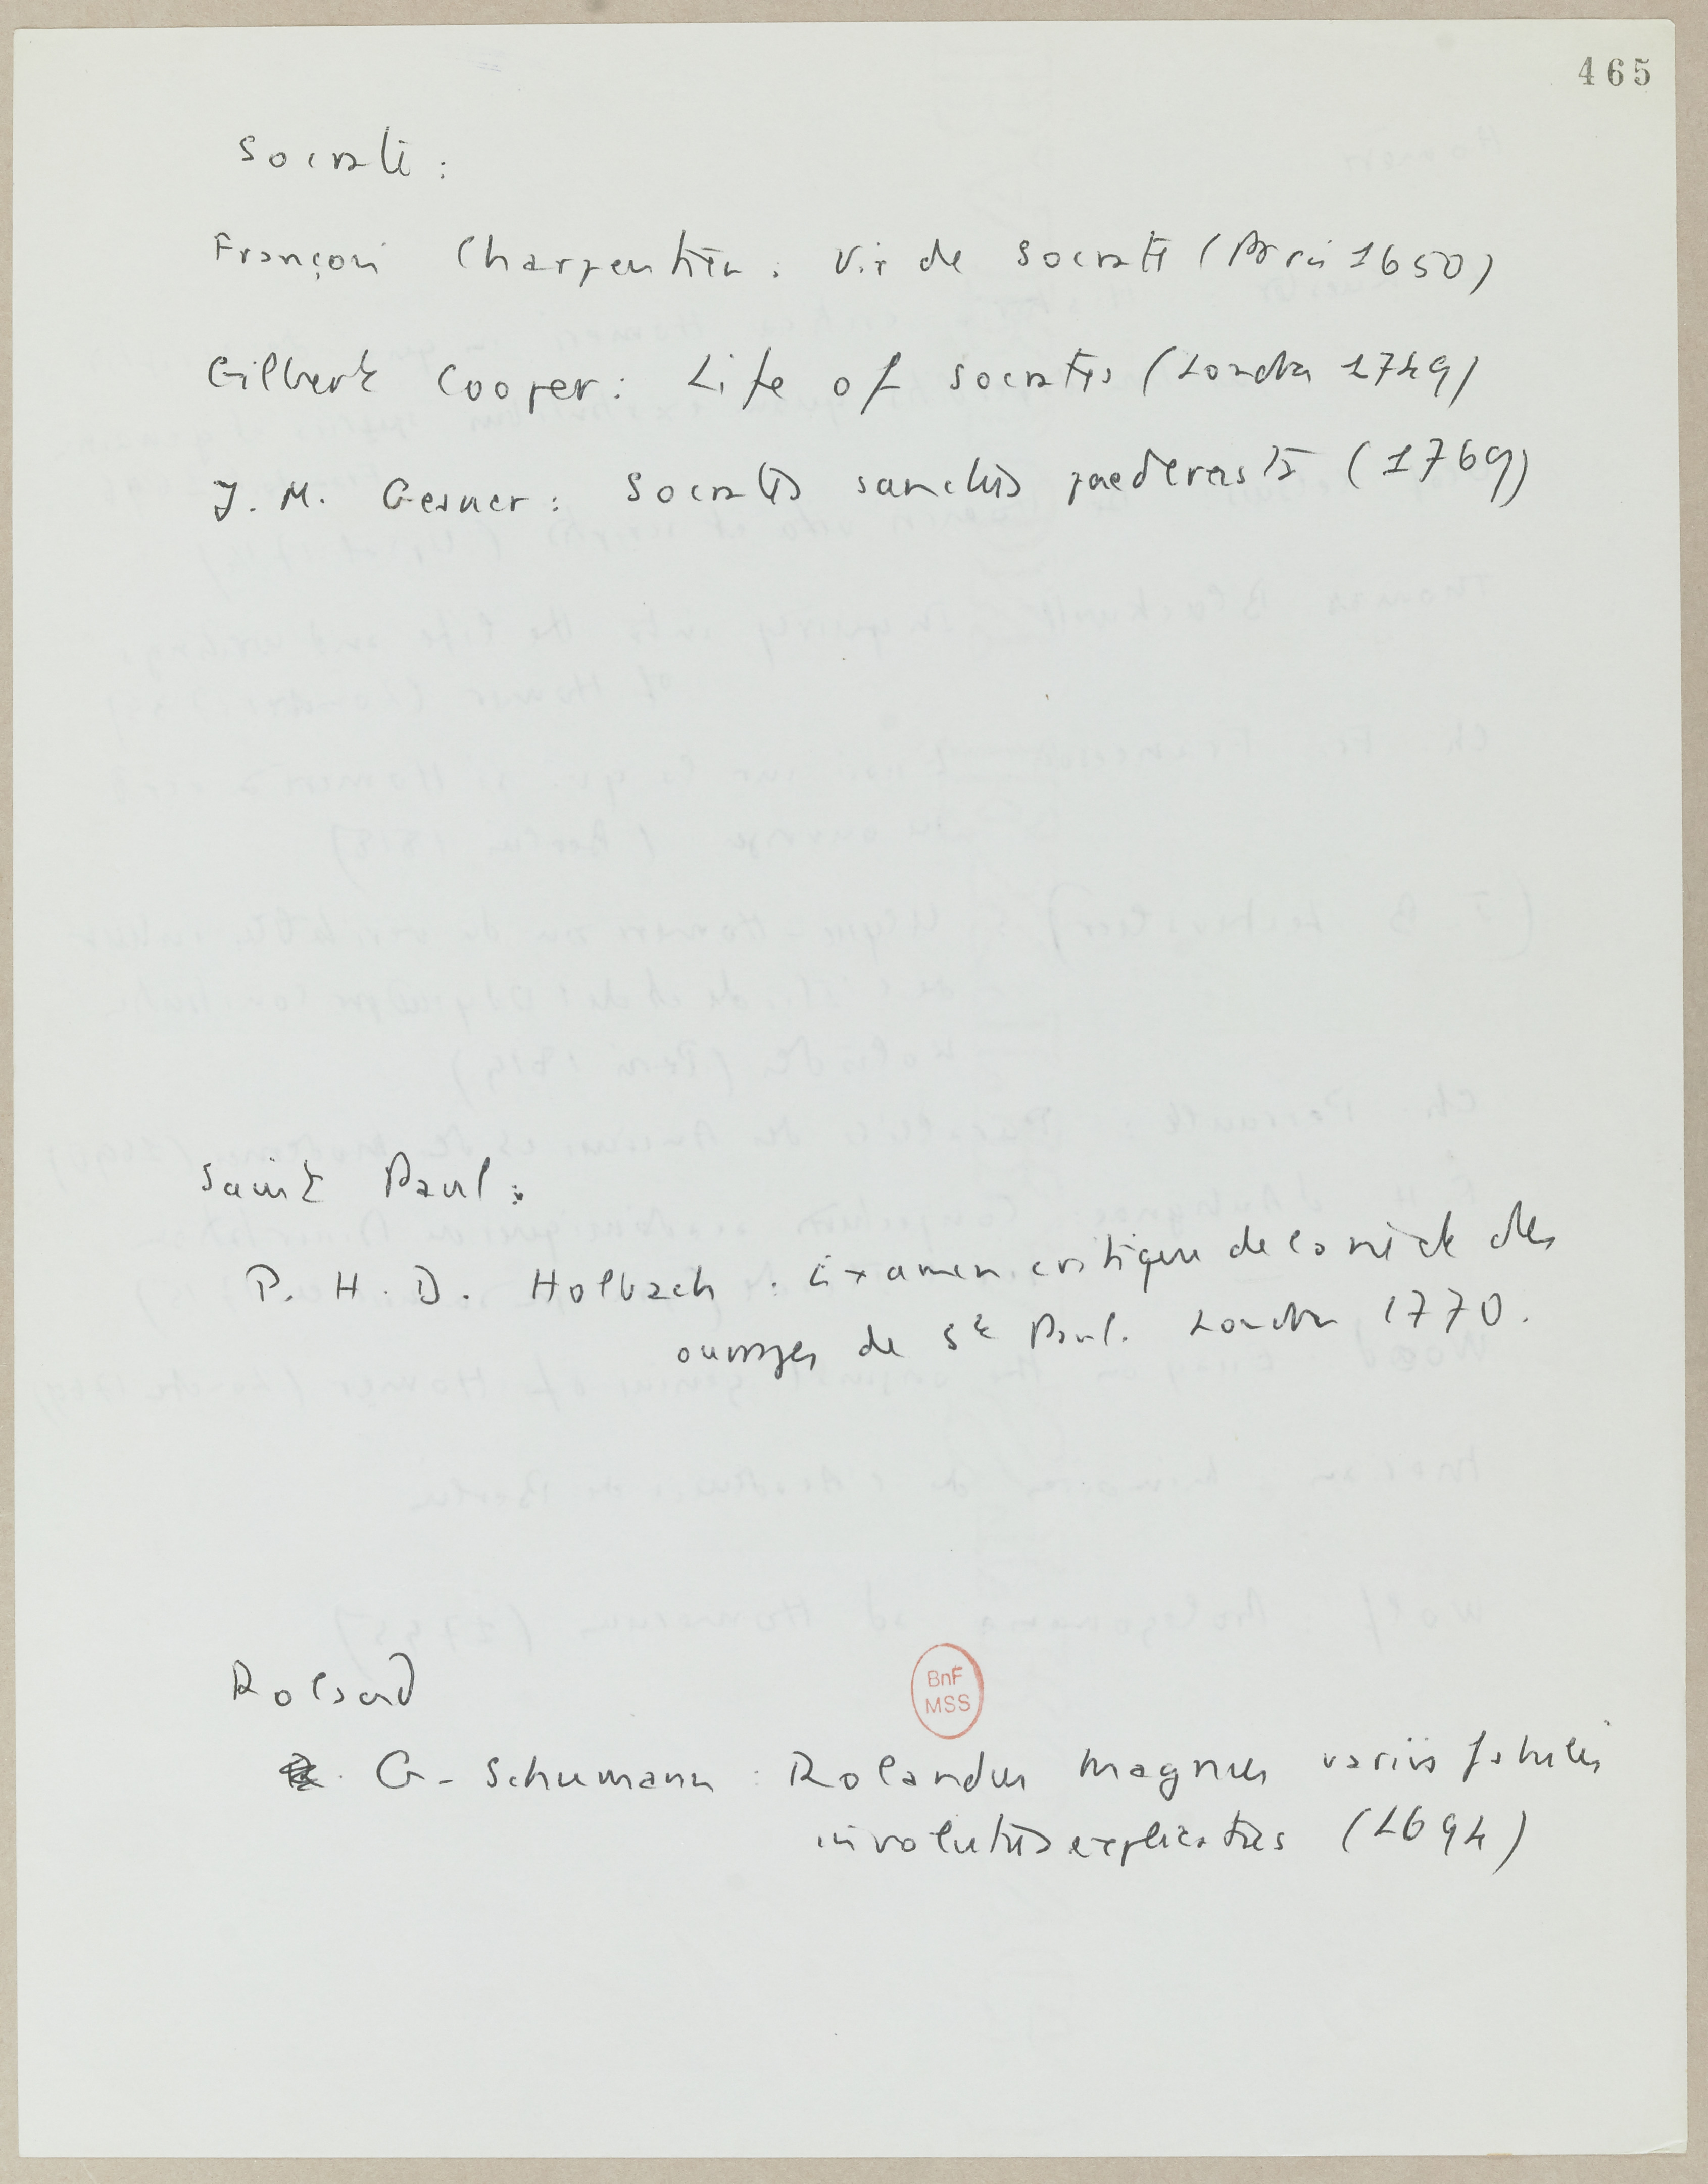 465
Socrate :
François Charpentier : Vie de Socrate (Paris 1650)
Gilbert Cooper : Life of Socrates (Londres 1749)
J. M. Gesner : Socrates sanctus paederasta (1769)
Saint Paul :
P. H. D. Holbach : Examen critique de la vie et des
ouvrages de St Paul. Londres 1770.
Roland
G. Schumann : Rolandus magnus variis fabulis
involutus explicatus (1694)
BnF
MSS